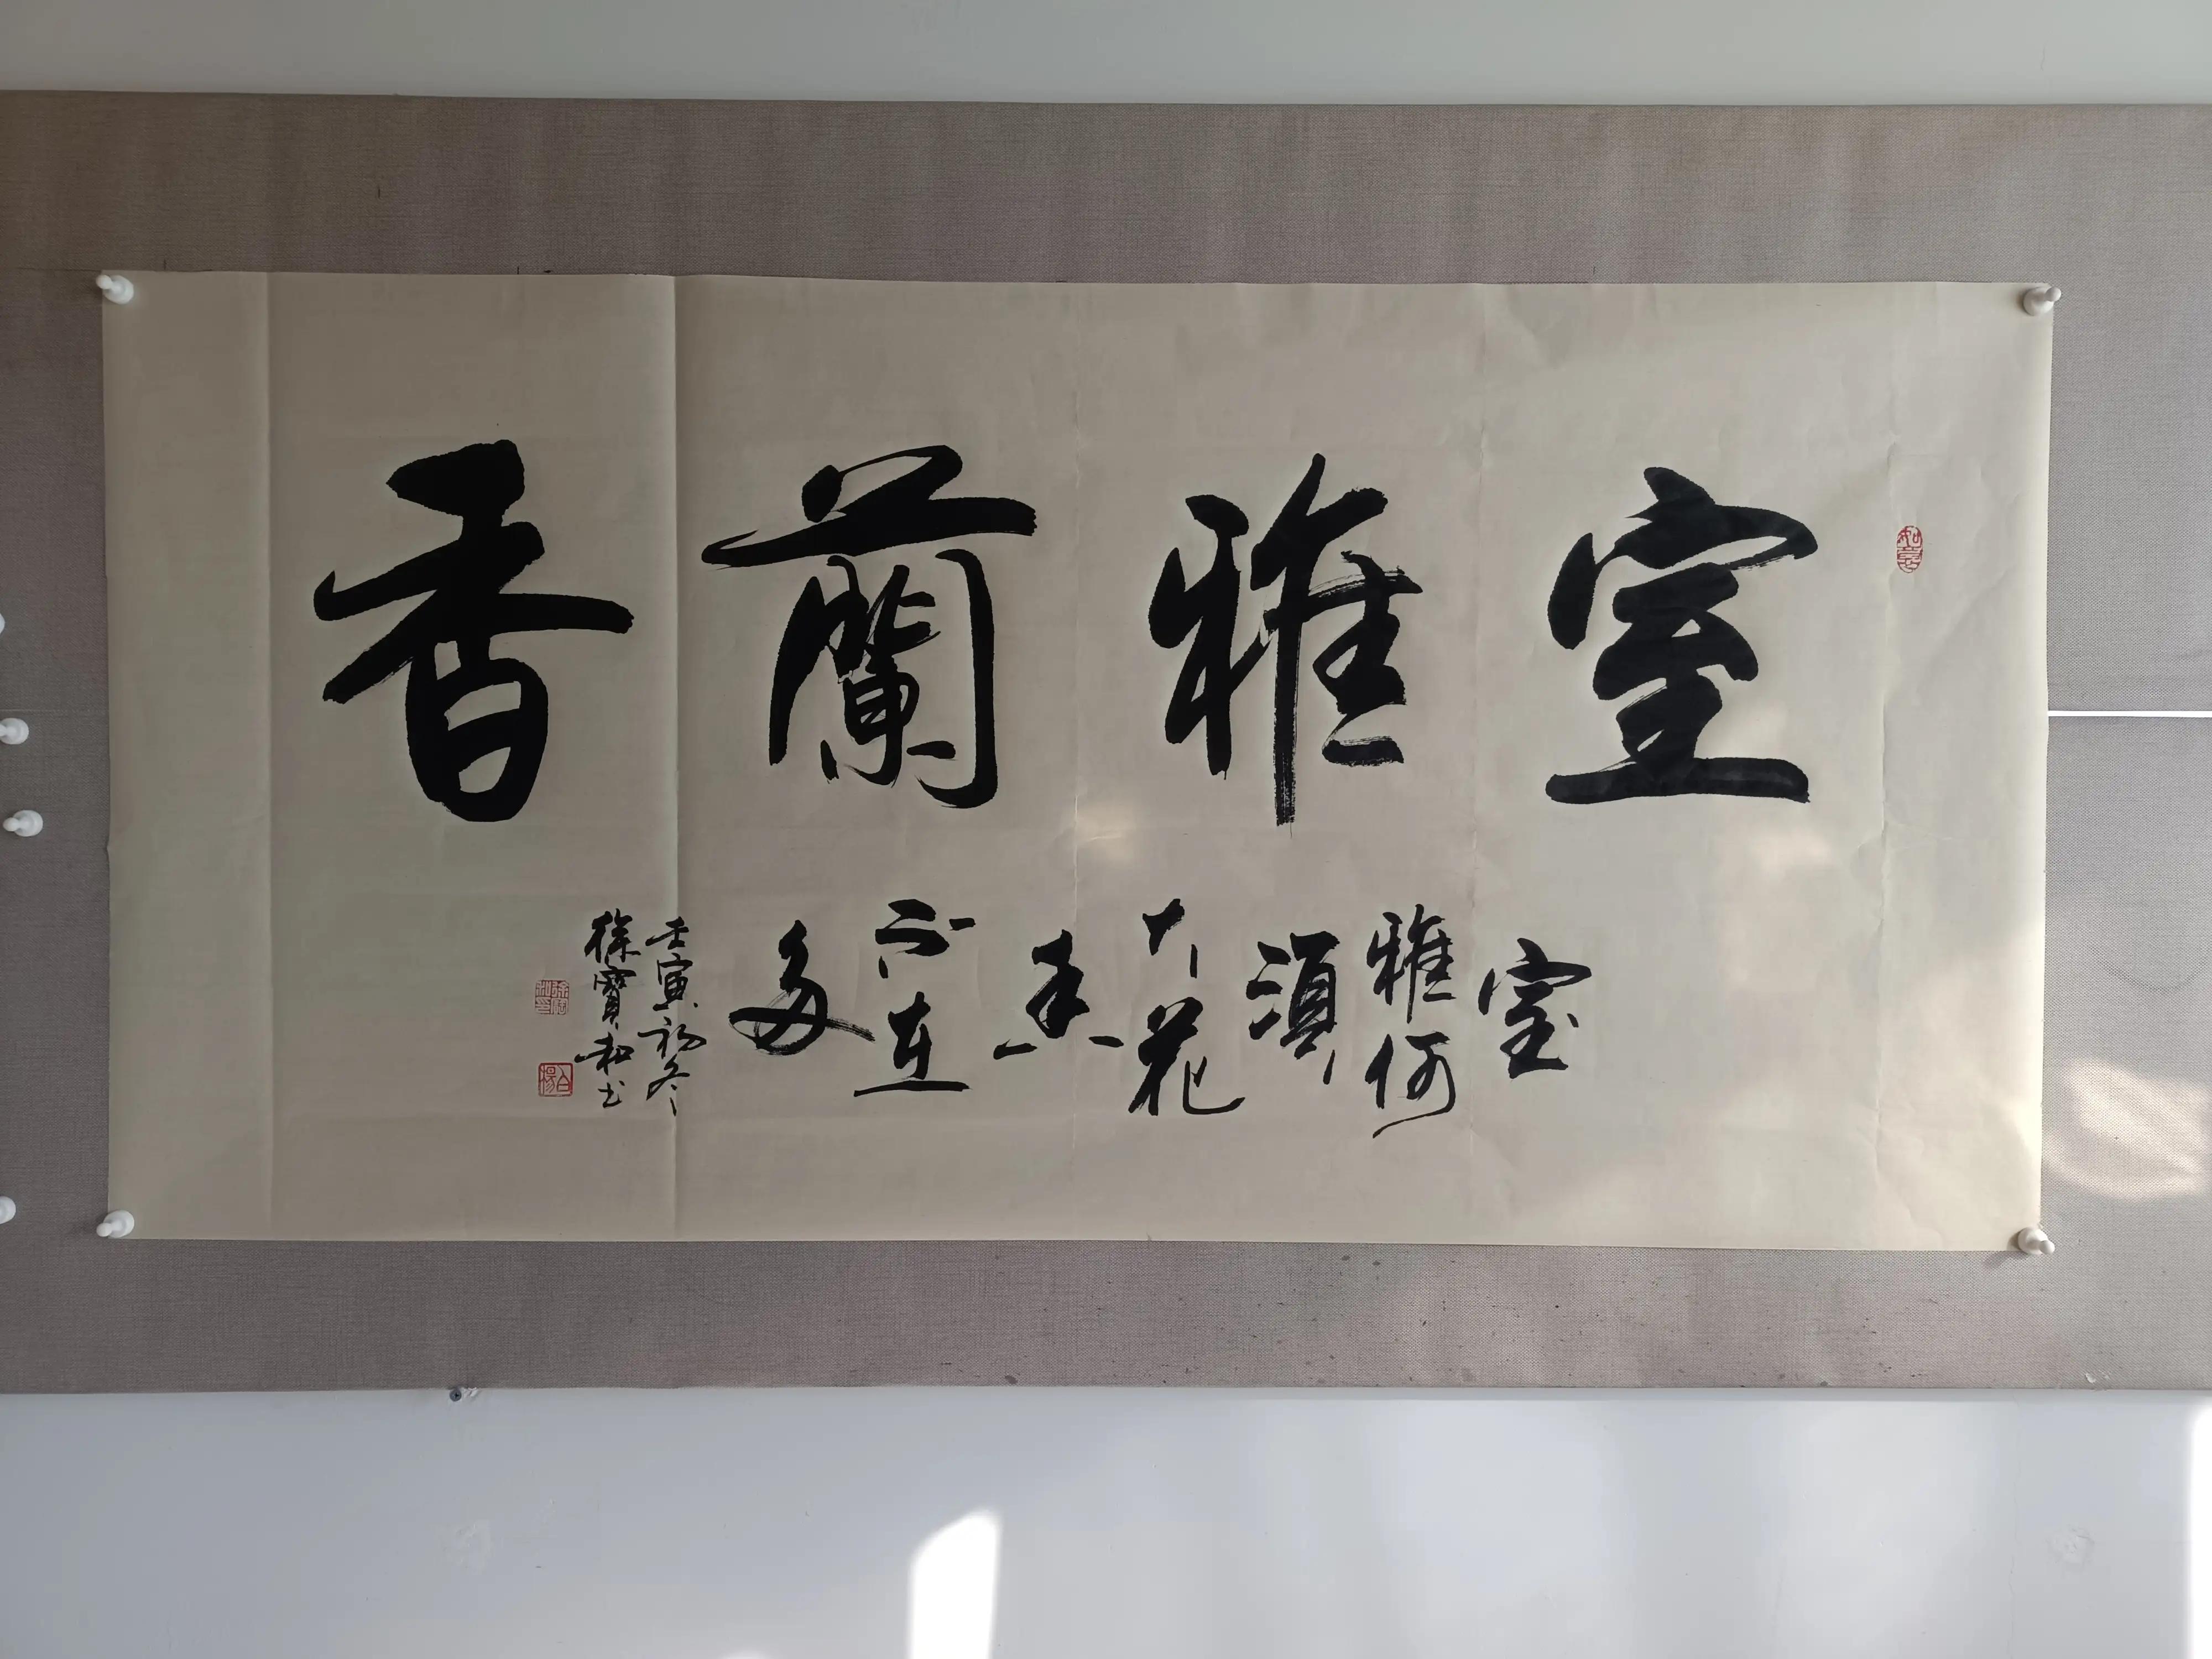 室雅蘭香
室
雅何
須
大花
香
不在
多
壬寅初冬
徐寶和书
如意